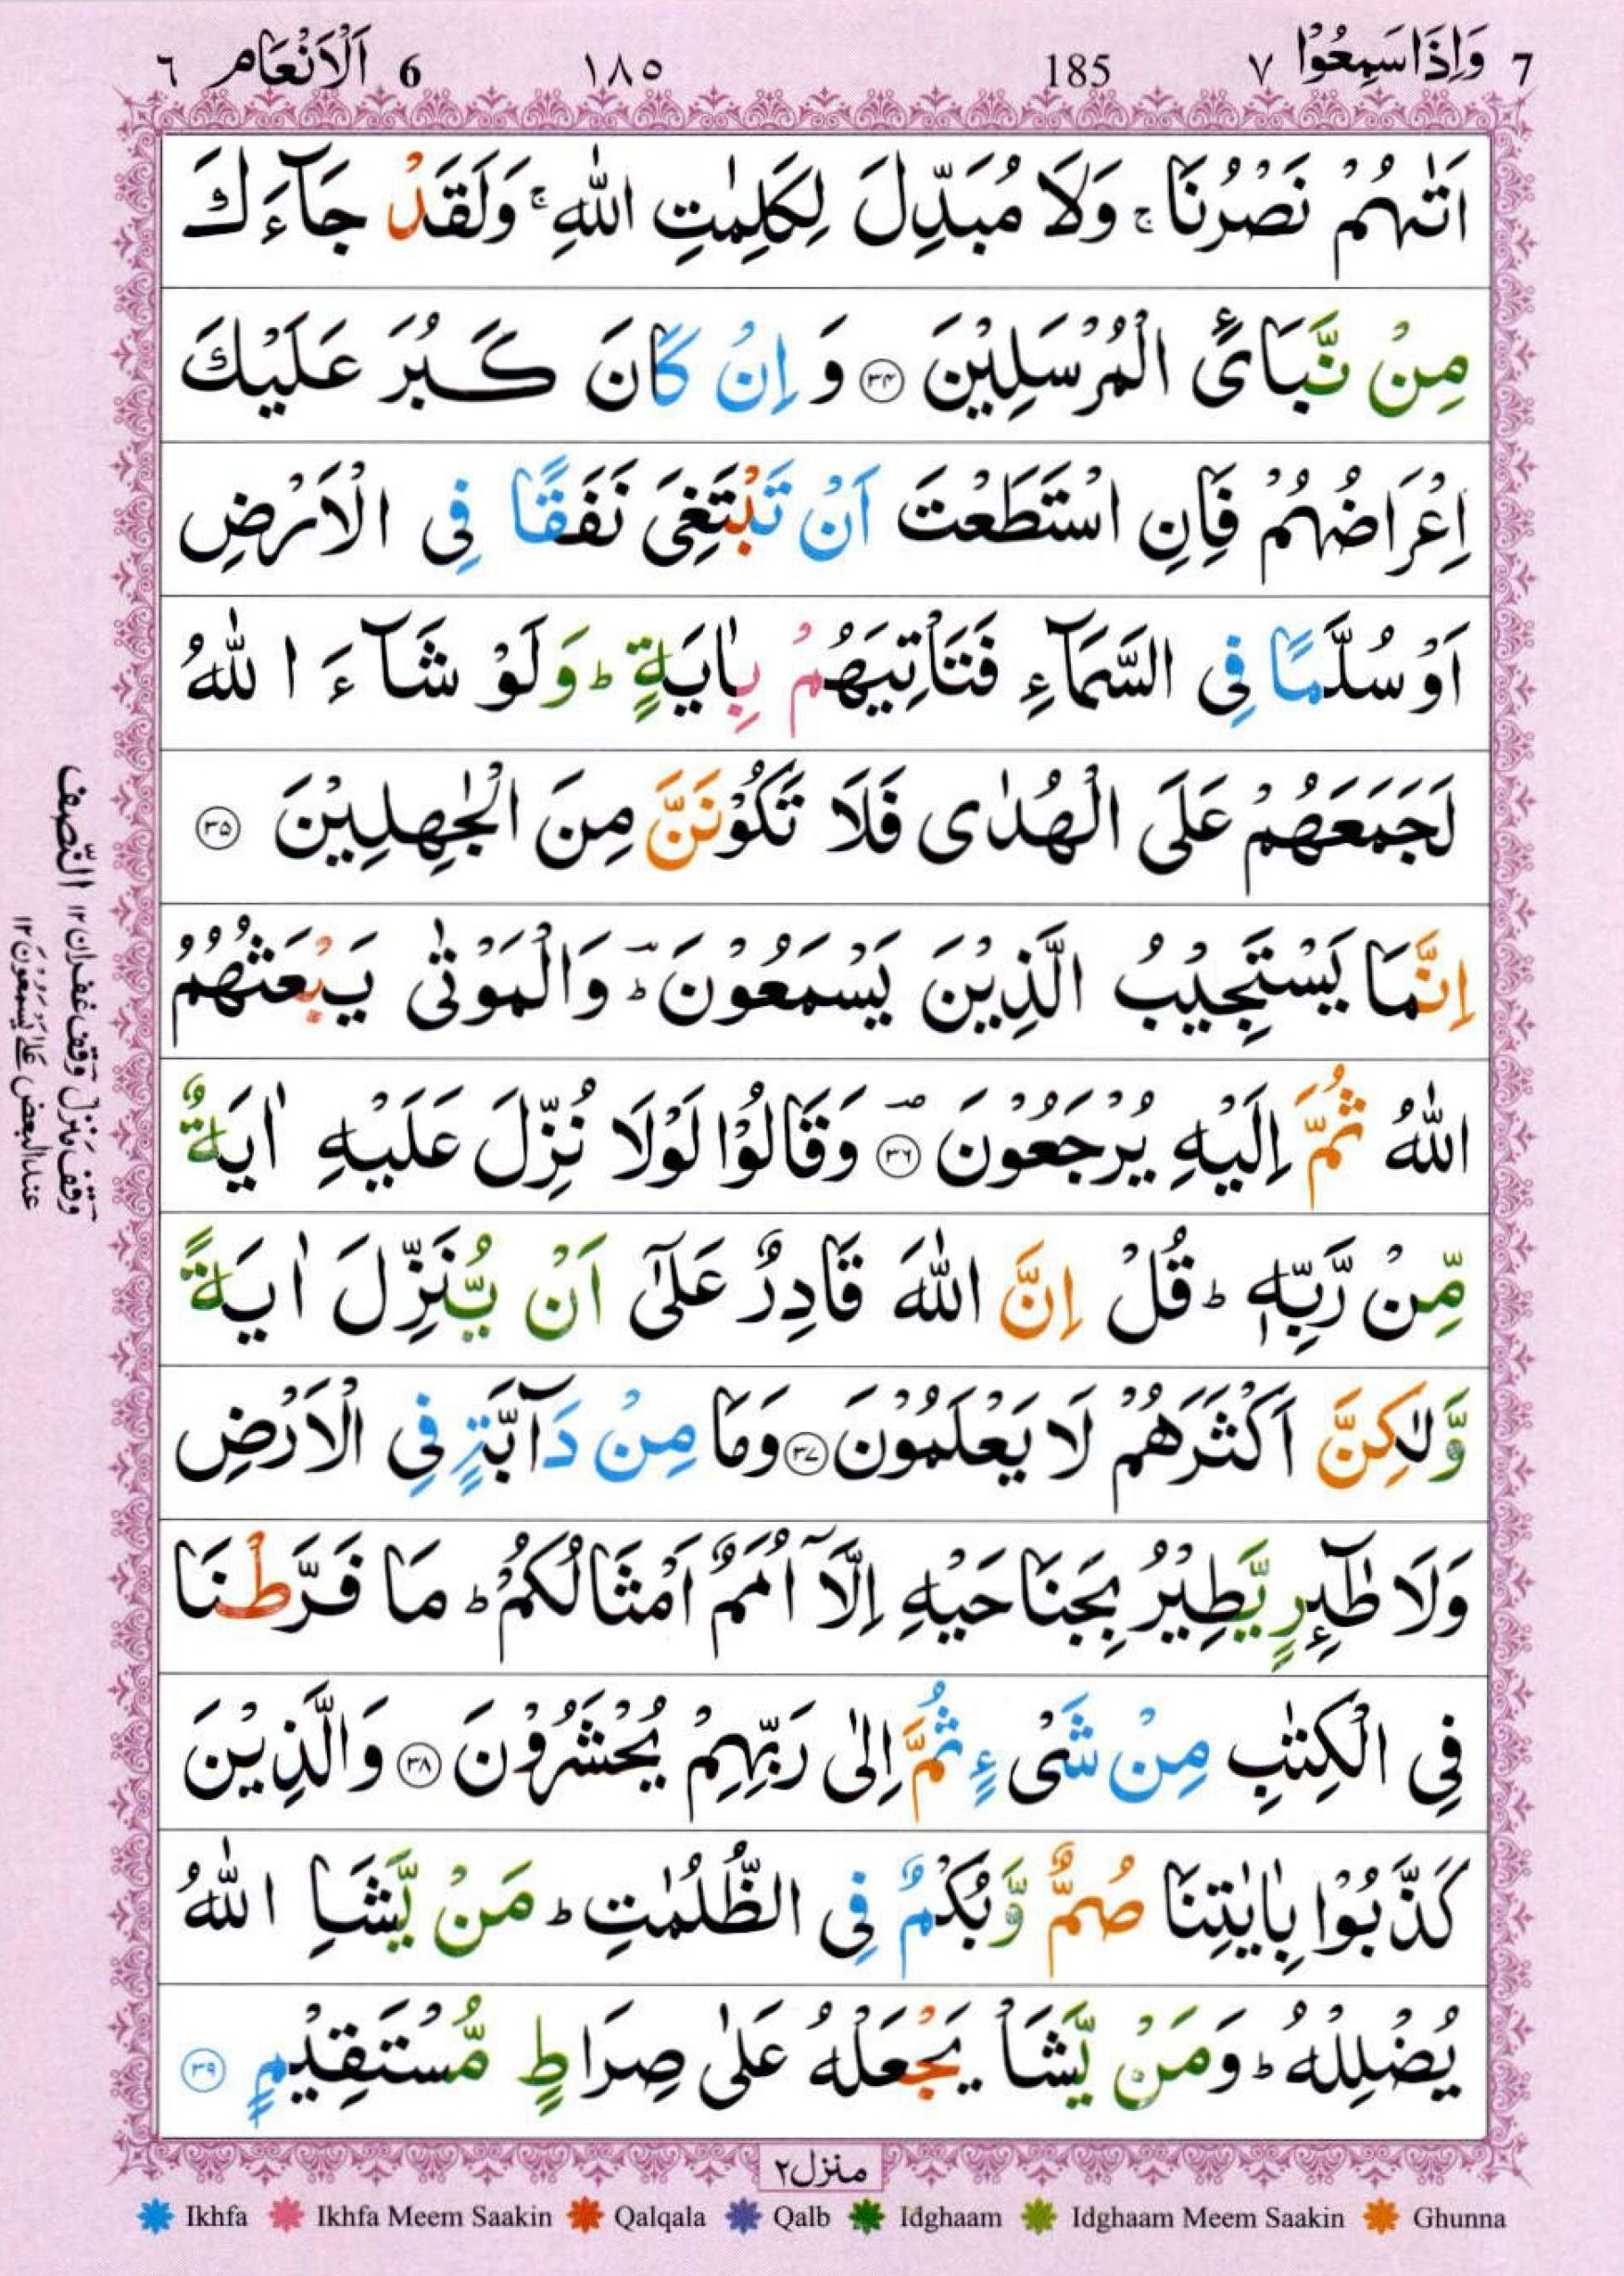 7 وَاِذَا سَمِعُوْا ٧ 185 ١٨٥ 6 اَلْاَنْعَام ٦
اَتٰىهُمْ نَصْرُنَا ۚ وَلَا مُبَدِّلَ لِكَلِمٰتِ اللّٰهِ ۚ وَلَقَدْ جَآءَكَ
مِنْ نَّبَاِئ الْمُرْسَلِيْنَ ﴿۳۴﴾ وَ اِنْ كَانَ كَبُرَ عَلَيْكَ
اِعْرَاضُهُمْ فَاِنِ اسْتَطَعْتَ اَنْ تَبْتَغِیَ نَفَقًا فِی الْاَرْضِ
اَوْ سُلَّمًا فِی السَّمَآءِ فَتَاْتِيَهُمْ بِاٰيَةٍ ؕ وَلَوْ شَآءَ اللّٰهُ
لَجَمَعَهُمْ عَلَی الْهُدٰی فَلَا تَكُوْنَنَّ مِنَ الْجٰهِلِيْنَ ﴿۳۵﴾
اِنَّمَا يَسْتَجِيْبُ الَّذِيْنَ يَسْمَعُوْنَ ؕ وَالْمَوْتٰی يَبْعَثُهُمُ
اللّٰهُ ثُمَّ اِلَيْهِ يُرْجَعُوْنَ ﴿۳۶﴾ وَقَالُوْا لَوْلَا نُزِّلَ عَلَيْهِ اٰيَةٌ
مِّنْ رَّبِّهٖ ؕ قُلْ اِنَّ اللّٰهَ قَادِرٌ عَلٰٓی اَنْ يُّنَزِّلَ اٰيَةً
وَّلٰكِنَّ اَكْثَرَهُمْ لَا يَعْلَمُوْنَ ﴿۳۷﴾ وَمَا مِنْ دَآبَّةٍ فِی الْاَرْضِ
وَلَا طٰٓئِرٍ يَّطِيْرُ بِجَنَاحَيْهِ اِلَّاۤ اُمَمٌ اَمْثَالُكُمْ ؕ مَا فَرَّطْنَا
فِی الْكِتٰبِ مِنْ شَیْءٍ ثُمَّ اِلٰی رَبِّهِمْ يُحْشَرُوْنَ ﴿۳۸﴾ وَالَّذِيْنَ
كَذَّبُوْا بِاٰيٰتِنَا صُمٌّ وَّبُكْمٌ فِی الظُّلُمٰتِ ؕ مَنْ يَّشَاِ اللّٰهُ
يُضْلِلْهُ ؕ وَمَنْ يَّشَاْ يَجْعَلْهُ عَلٰی صِرَاطٍ مُّسْتَقِيْمٍ ﴿۳۹﴾
النّصف وقف منزل وقف غفران ۱۲
عند البعض علی يَسْمَعُوْنَ ۱۲
منزل ۲
Ikhfa Ikhfa Meem Saakin Qalqala Qalb Idghaam Idghaam Meem Saakin Ghunna